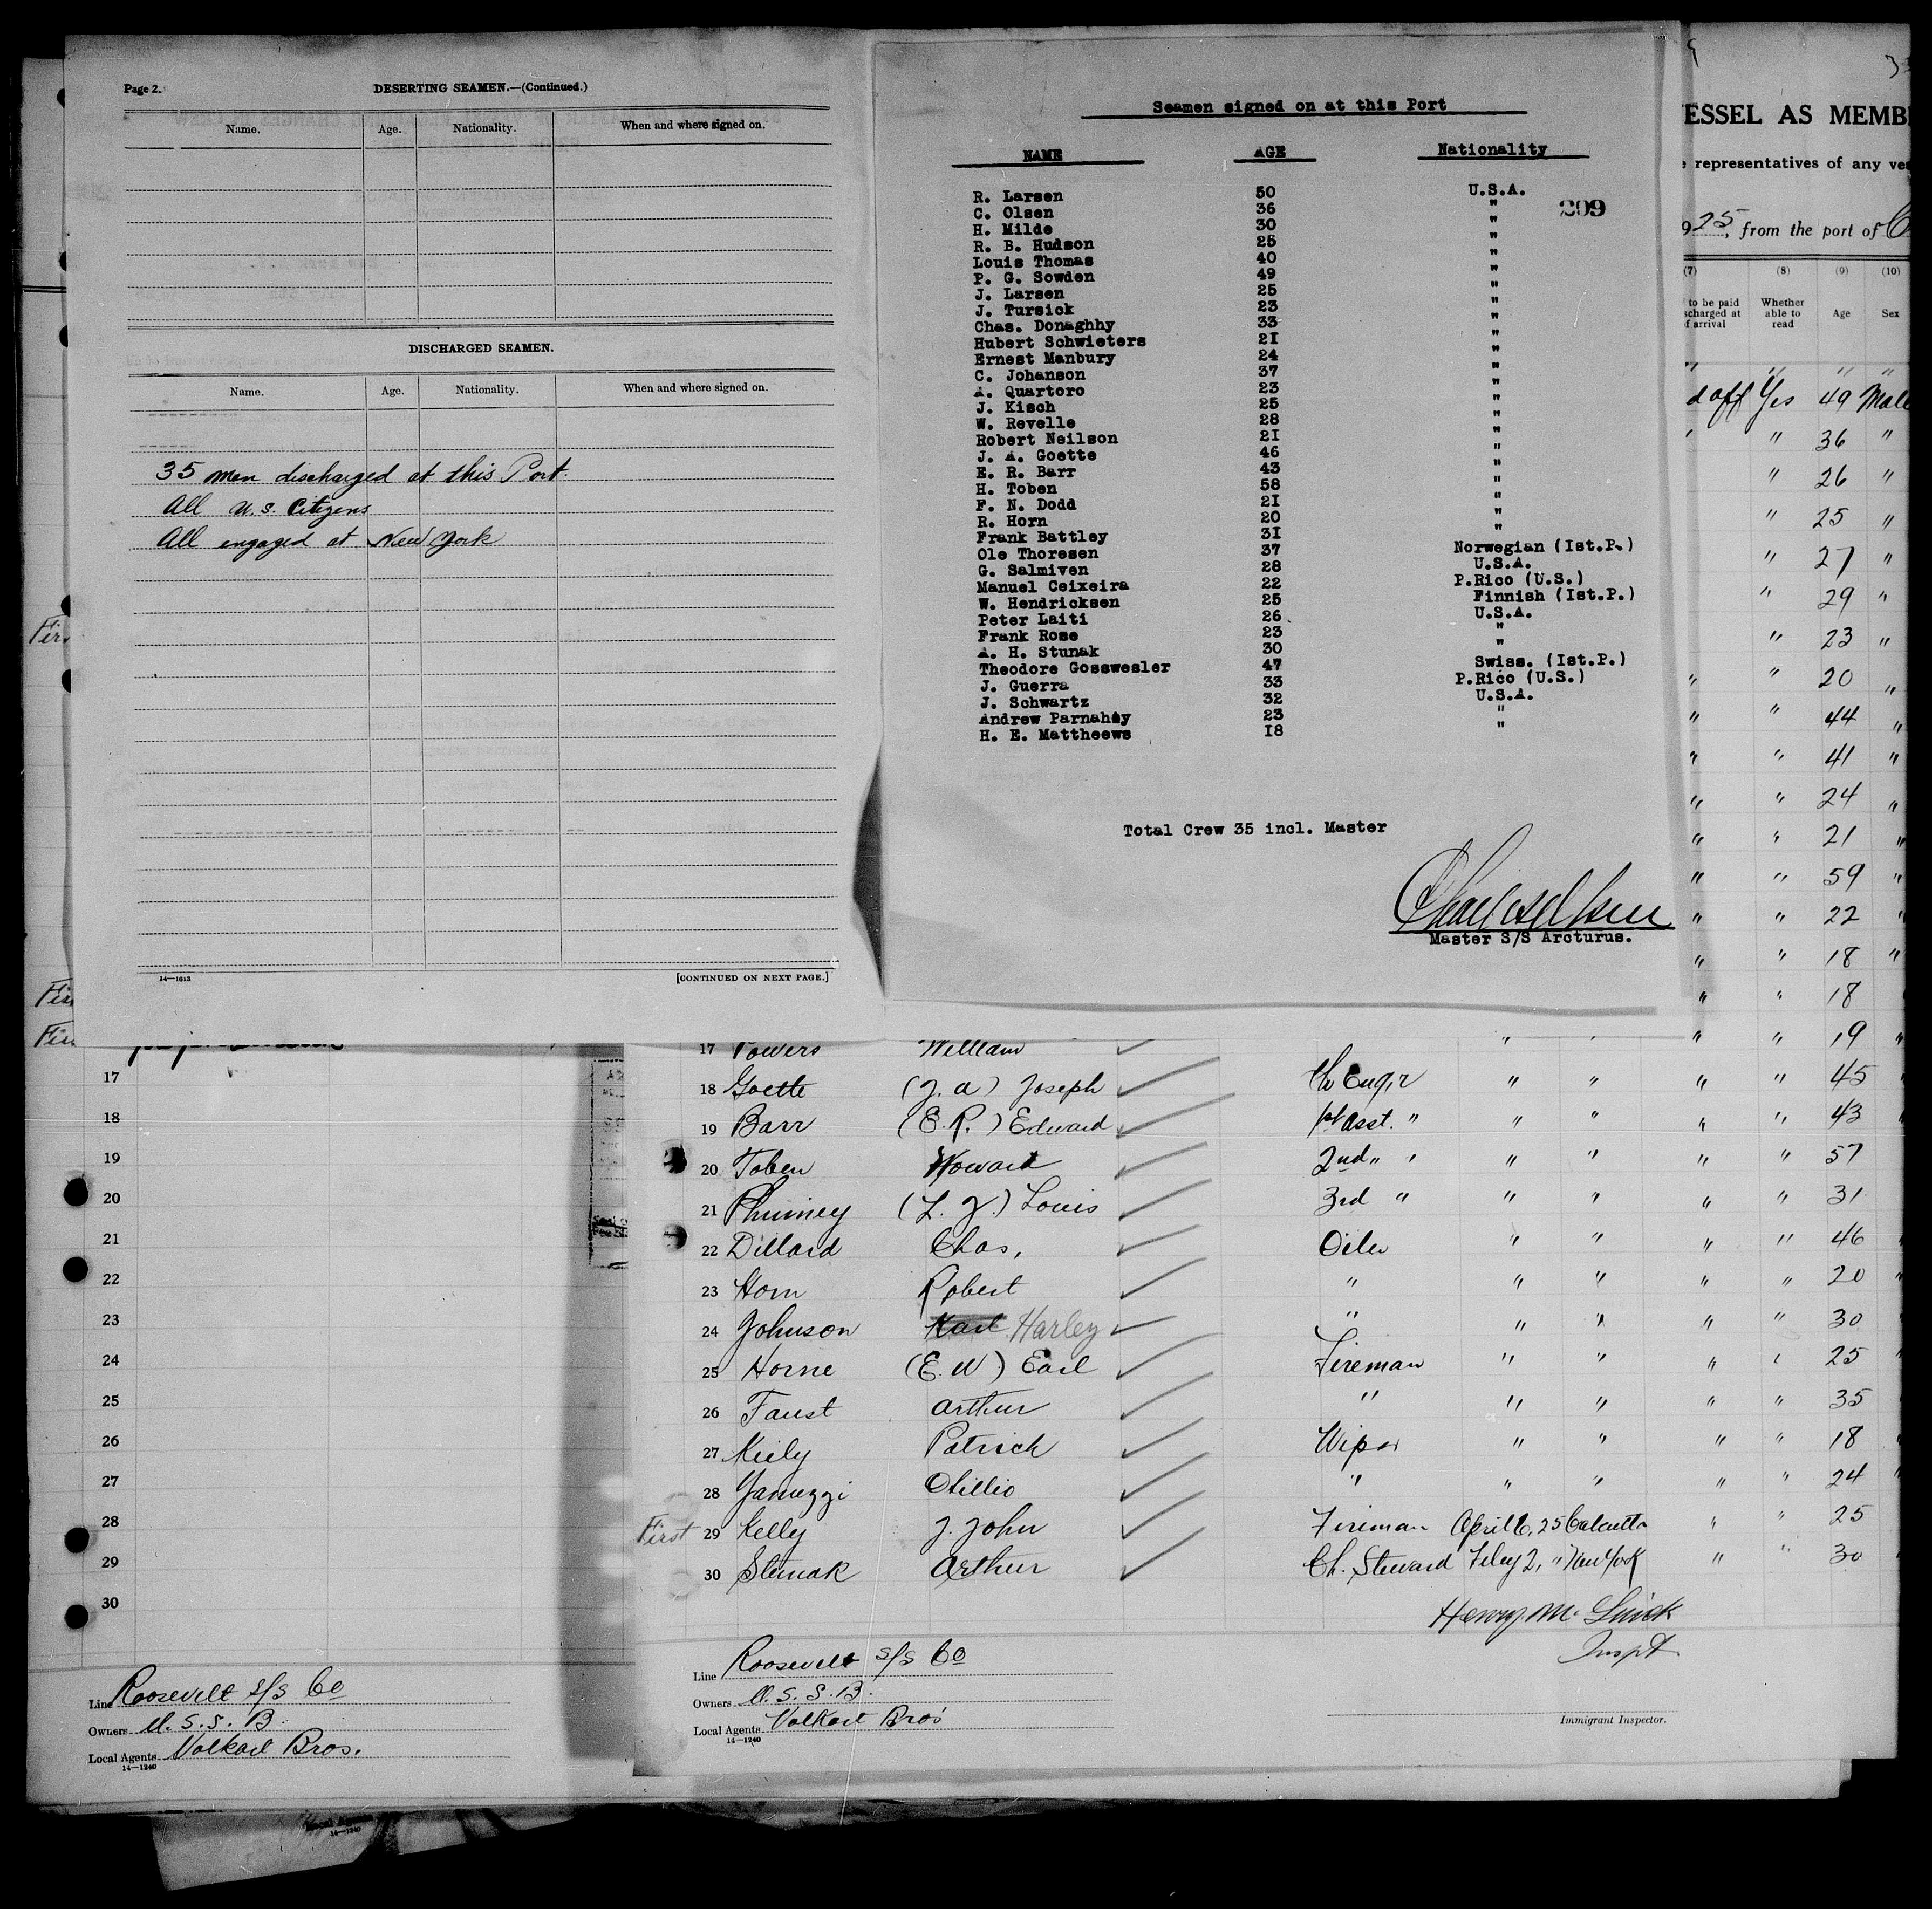 Page 2.
DESERTING SEAMEN.—(Continued.)
Name. Age. Nationality. When and where signed on.
DISCHARGED SEAMEN.
Name. Age. Nationality. When and where signed on.
35 men discharged at this Port.
All U.S. Citizens
All engaged at New York
14—1613
[CONTINUED ON NEXT PAGE.]
Seamen signed on at this Port
NAME AGE Nationality
209
R. Larsen 50 U.S.A.
C. Olsen 36 "
H. Milde 30 "
R. B. Hudson 25 "
Louis Thomas 40 "
P. G. Sowden 49 "
J. Larsen 25 "
J. Tursick 23 "
Chas. Donaghhy 33 "
Hubert Schwieters 21 "
Ernest Manbury 24 "
C. Johanson 37 "
A. Quartoro 23 "
J. Kisch 25 "
W. Revelle 28 "
Robert Neilson 21 "
J. A. Goette 46 "
E. R. Barr 43 "
H. Toben 58 "
F. N. Dodd 21 "
R. Horn 20 "
Frank Battley 31 "
Ole Thoresen 37 Norwegian (Ist.P.)
G. Salmiven 28 U.S.A.
Manuel Ceixeira 22 P.Rico (U.S.)
W. Hendricksen 25 Finnish (Ist.P.)
Peter Laiti 26 U.S.A.
Frank Rose 23 "
A. H. Stunak 30 "
Theodore Gosswesler 47 Swiss. (Ist.P.)
J. Guerra 33 P.Rico (U.S.)
J. Schwartz 32 U.S.A.
Andrew Parnahhy 23 "
H. E. Mattheews 18 "
Total Crew 35 incl. Master
Master S/S Arcturus.
ESSEL AS MEMB
representatives of any ves
925, from the port of
(7) (8) (9) (10)
to be paid
scharged at
of arrival
Whether
able to
read
Age
Sex
d off Yes 49 Male
" " 36 "
" 26 "
" 25 "
" 27 "
" 29 "
" 23 "
" " 20 "
" " 44 "
" " 41 "
" " 24 "
" " 21 "
" " 59 "
" " 22 "
" " 18 "
" " 18
" " 19 "
17 Powers William " " " "
18 Goette (J. A) Joseph Ch Engr " " " " 45
19 Barr (E. R.) Edward 1st Asst. " " " " " 43
20 Toben Howard 2nd " " " " " " 57
21 Phinney (L. J.) Louis 3rd " " " " " 31
22 Dillard Chas. Oiler " " " " 46
23 Horn Robert " " " " " 20
24 Johnson Karl Harley " " " " " 30
25 Horne (E. W) Earl Fireman " " " " 25
26 Faust Arthur " " " " " 35
27 Kiely Patrick Wiper " " " " 18
28 Januzzi Otillio " " " " " 24
First 29 Kelly J. John Fireman April 6, 25 Calcutta " " 25
30 Stunak Arthur Ch. Steward Feby 2, " New York " " 30
Inspt
Line Roosevelt S/S Co
Owners U. S. S. B.
Local Agents Volkart Bros
14—1240
Immigrant Inspector.
17
18
19
20
21
22
23
24
25
26
27
28
29
30
Line Roosevelt S/S Co
Owners U. S. S. B.
Local Agents Volkart Bros.
14—1240